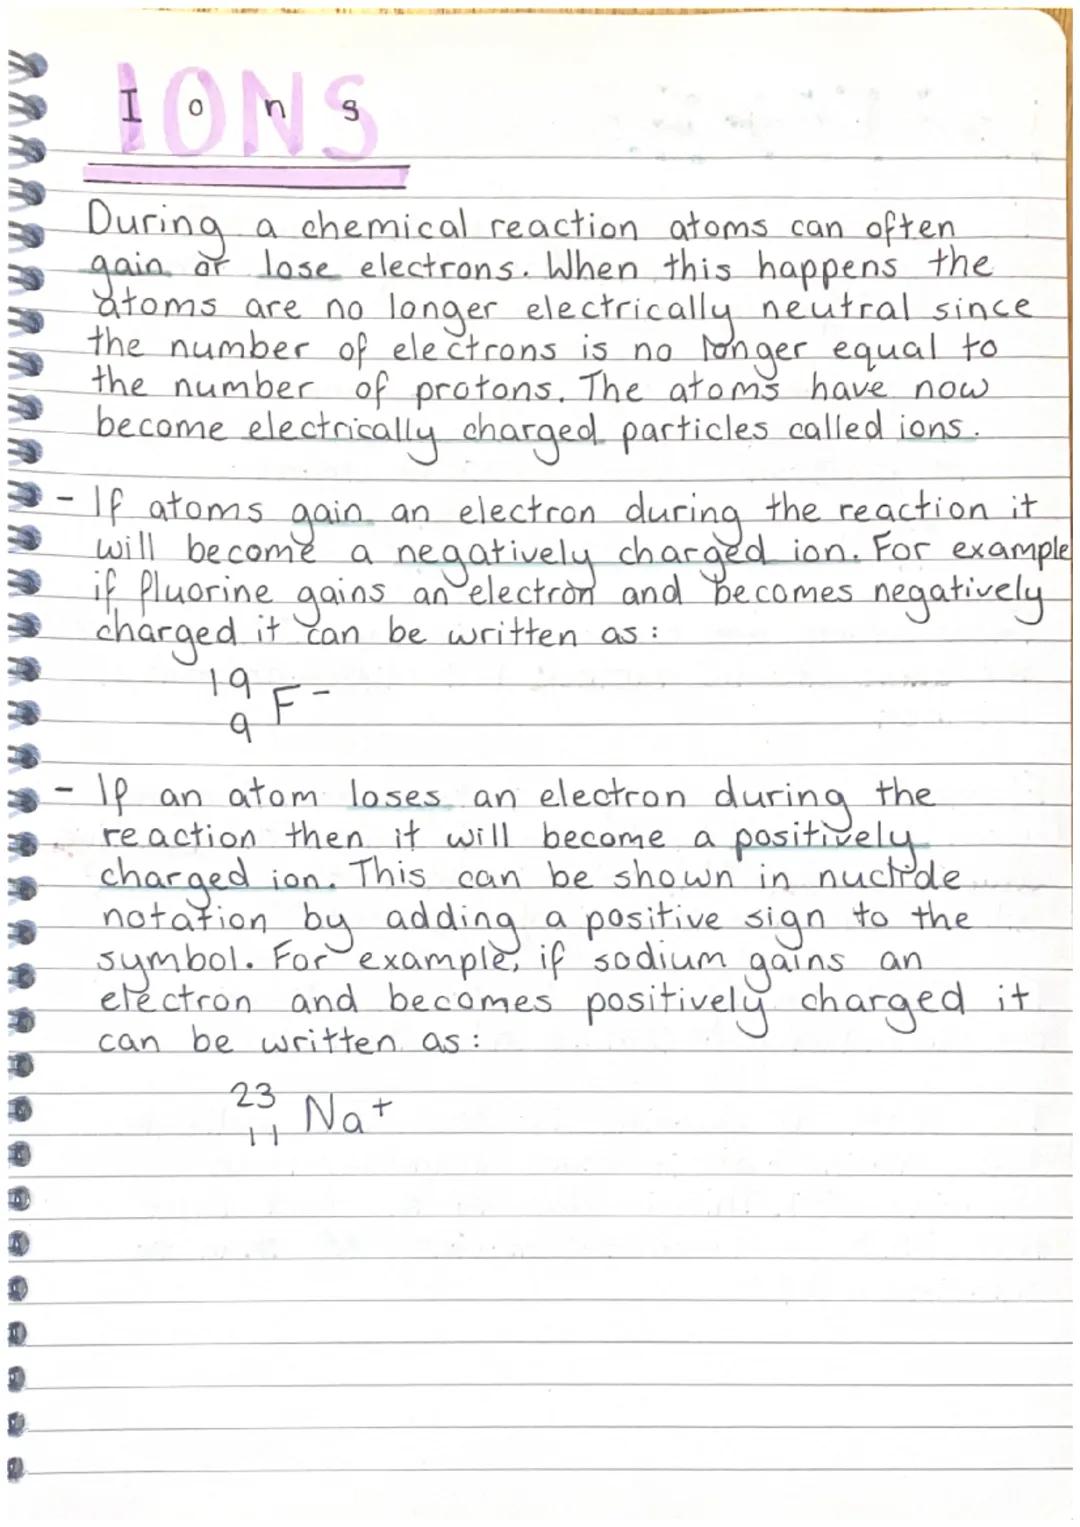 IONS
Ions
During a chemical reaction atoms can often
gain or lose electrons. When this happens the
atoms are no longer electrically neutral since
the number of electrons is no longer equal to
the number of protons. The atoms have now
become electrically charged particles called ions.
- If atoms gain an electron during the reaction it
will become a negatively charged ion. For example
if fluorine gains an electron and becomes negatively
charged it can be written as :
19
F-
9
- If an atom loses an electron during the
reaction then it will become a positively
charged ion. This can be shown in nuclide
notation by adding a positive sign to the
symbol. For example, if sodium gains an
electron and becomes positively charged it
can be written as :
23
Na+
11